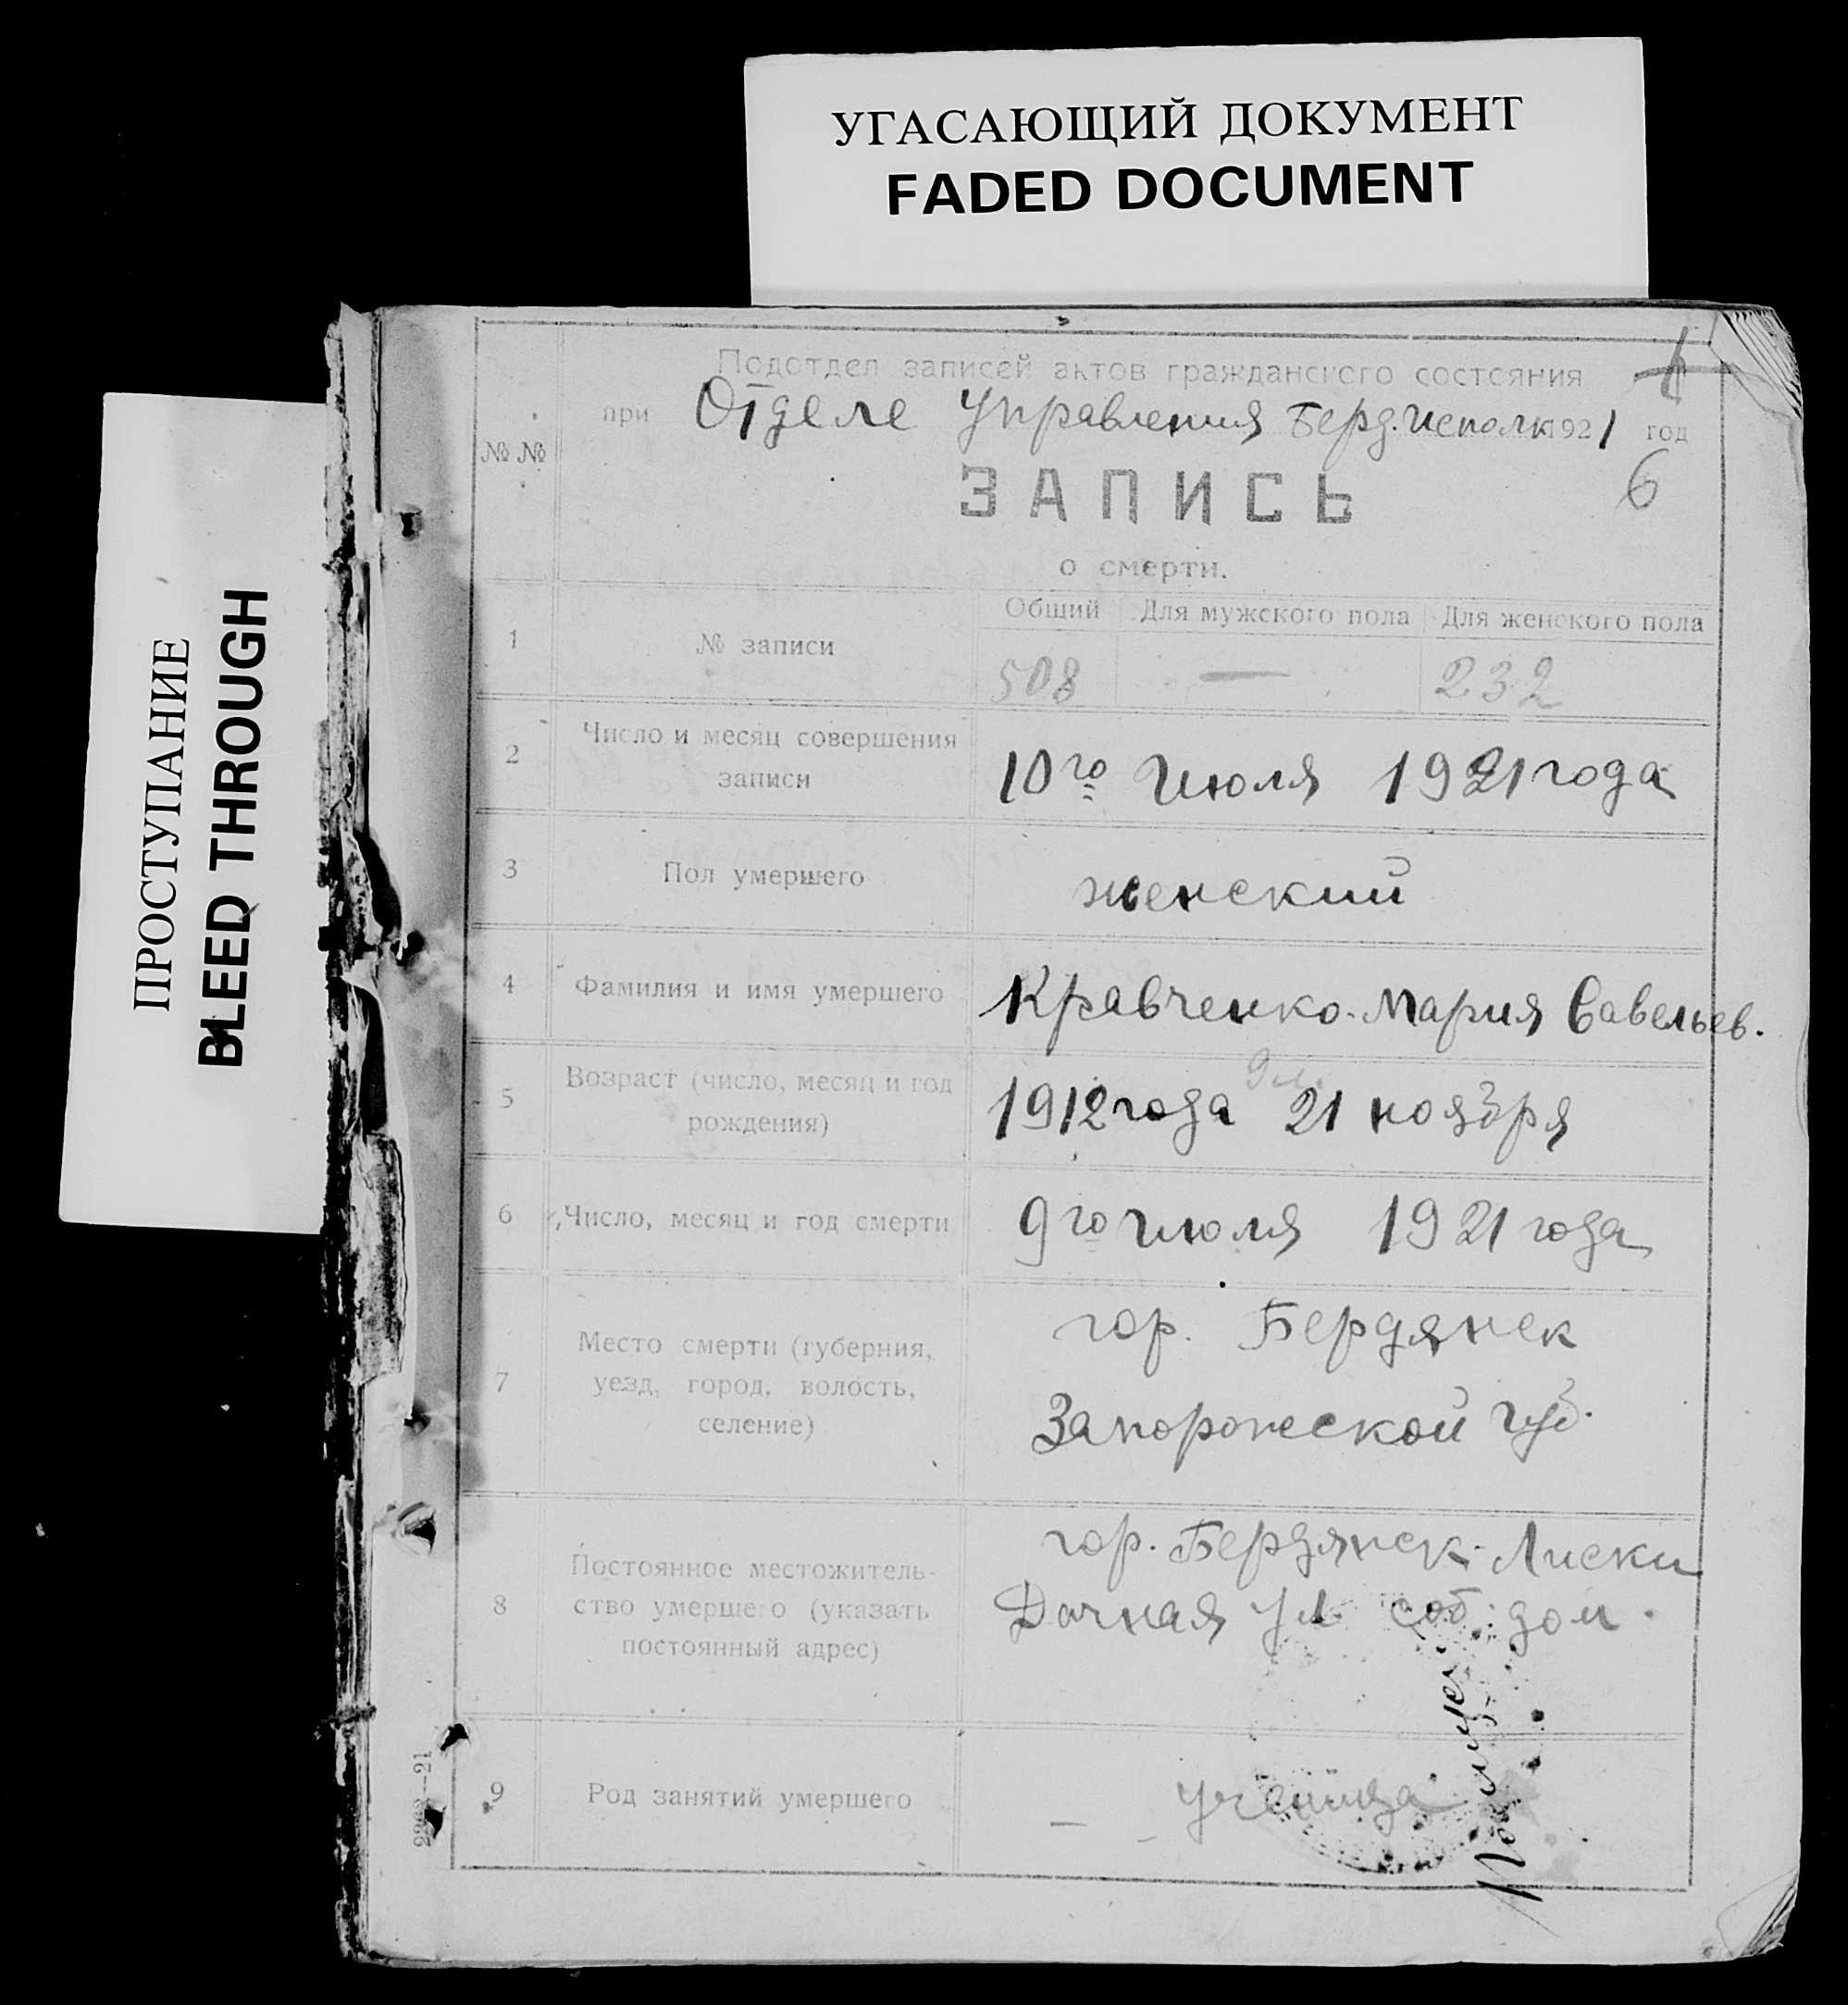 УГАСАЮЩИЙ ДОКУМЕНТ
FADED DOCUMENT
ПРОСТУПАНИЕ
BLEED THROUGH
Подотдел записей актов гражданского состояния
при Отделе Управления Берд. Исполк 1921 год
6
№ №
ЗАПИСЬ
о смерти.
Общий Для мужского пола Для женского пола
1 № записи 508 — 232
2 Число и месяц совершения
записи
10го Июля 1921 года
3 Пол умершего женский
4 Фамилия и имя умершего Кравченко Мария Савельев.
5 Возраст (число, месяц и год
рождения)
9 л.
1912 года 21 ноября
6 Число, месяц и год смерти 9го Июля 1921 года
7 Место смерти (губерния,
уезд, город, волость,
селение)
гор. Бердянск
Запорожской губ.
8 Постоянное местожитель-
ство умершего (указать
постоянный адрес)
гор. Бердянск Лиски
Дачная ул. соб. дом.
9 Род занятий умершего ученица